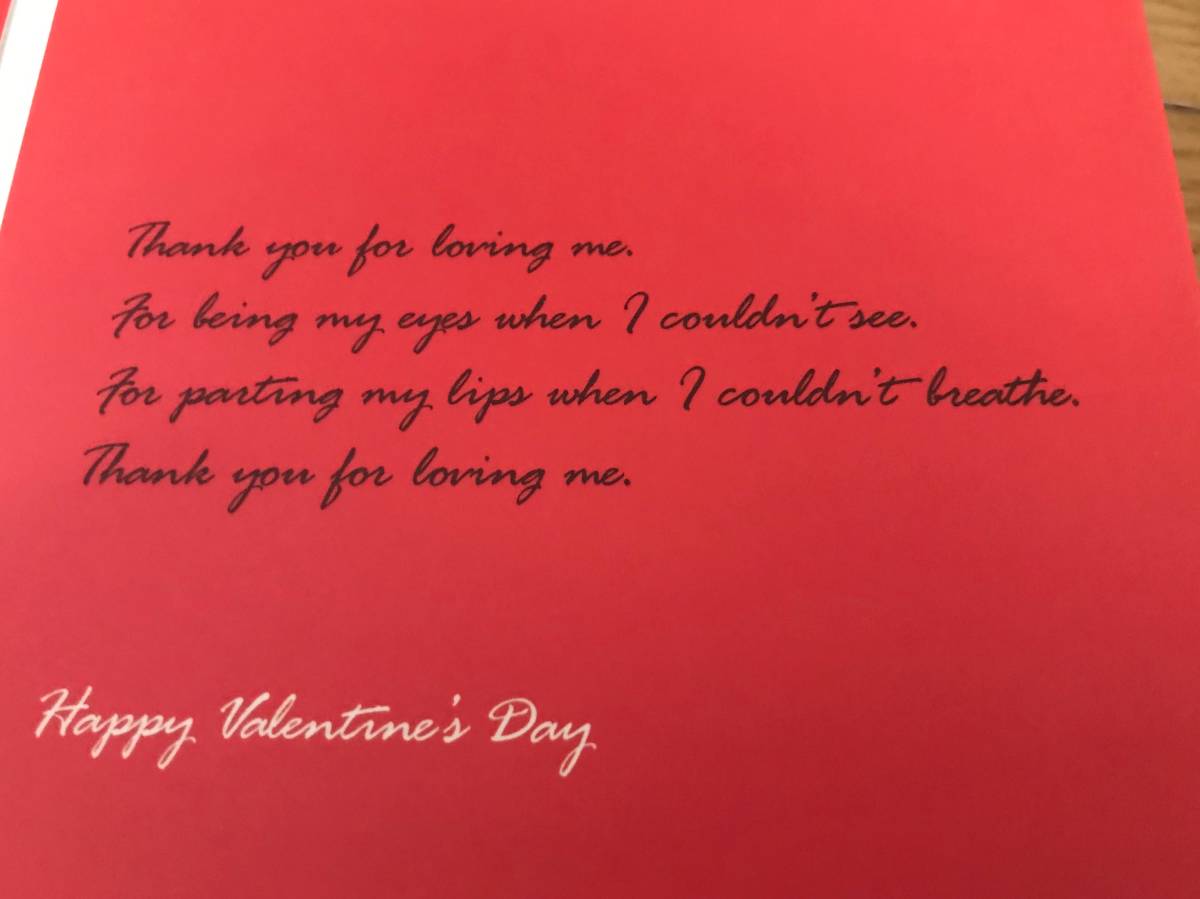 Thank you for loving me.
For being my eyes when I couldn't see.
For parting my lips when I couldn't breathe.
Thank you for loving me.
Happy Valentine's Day